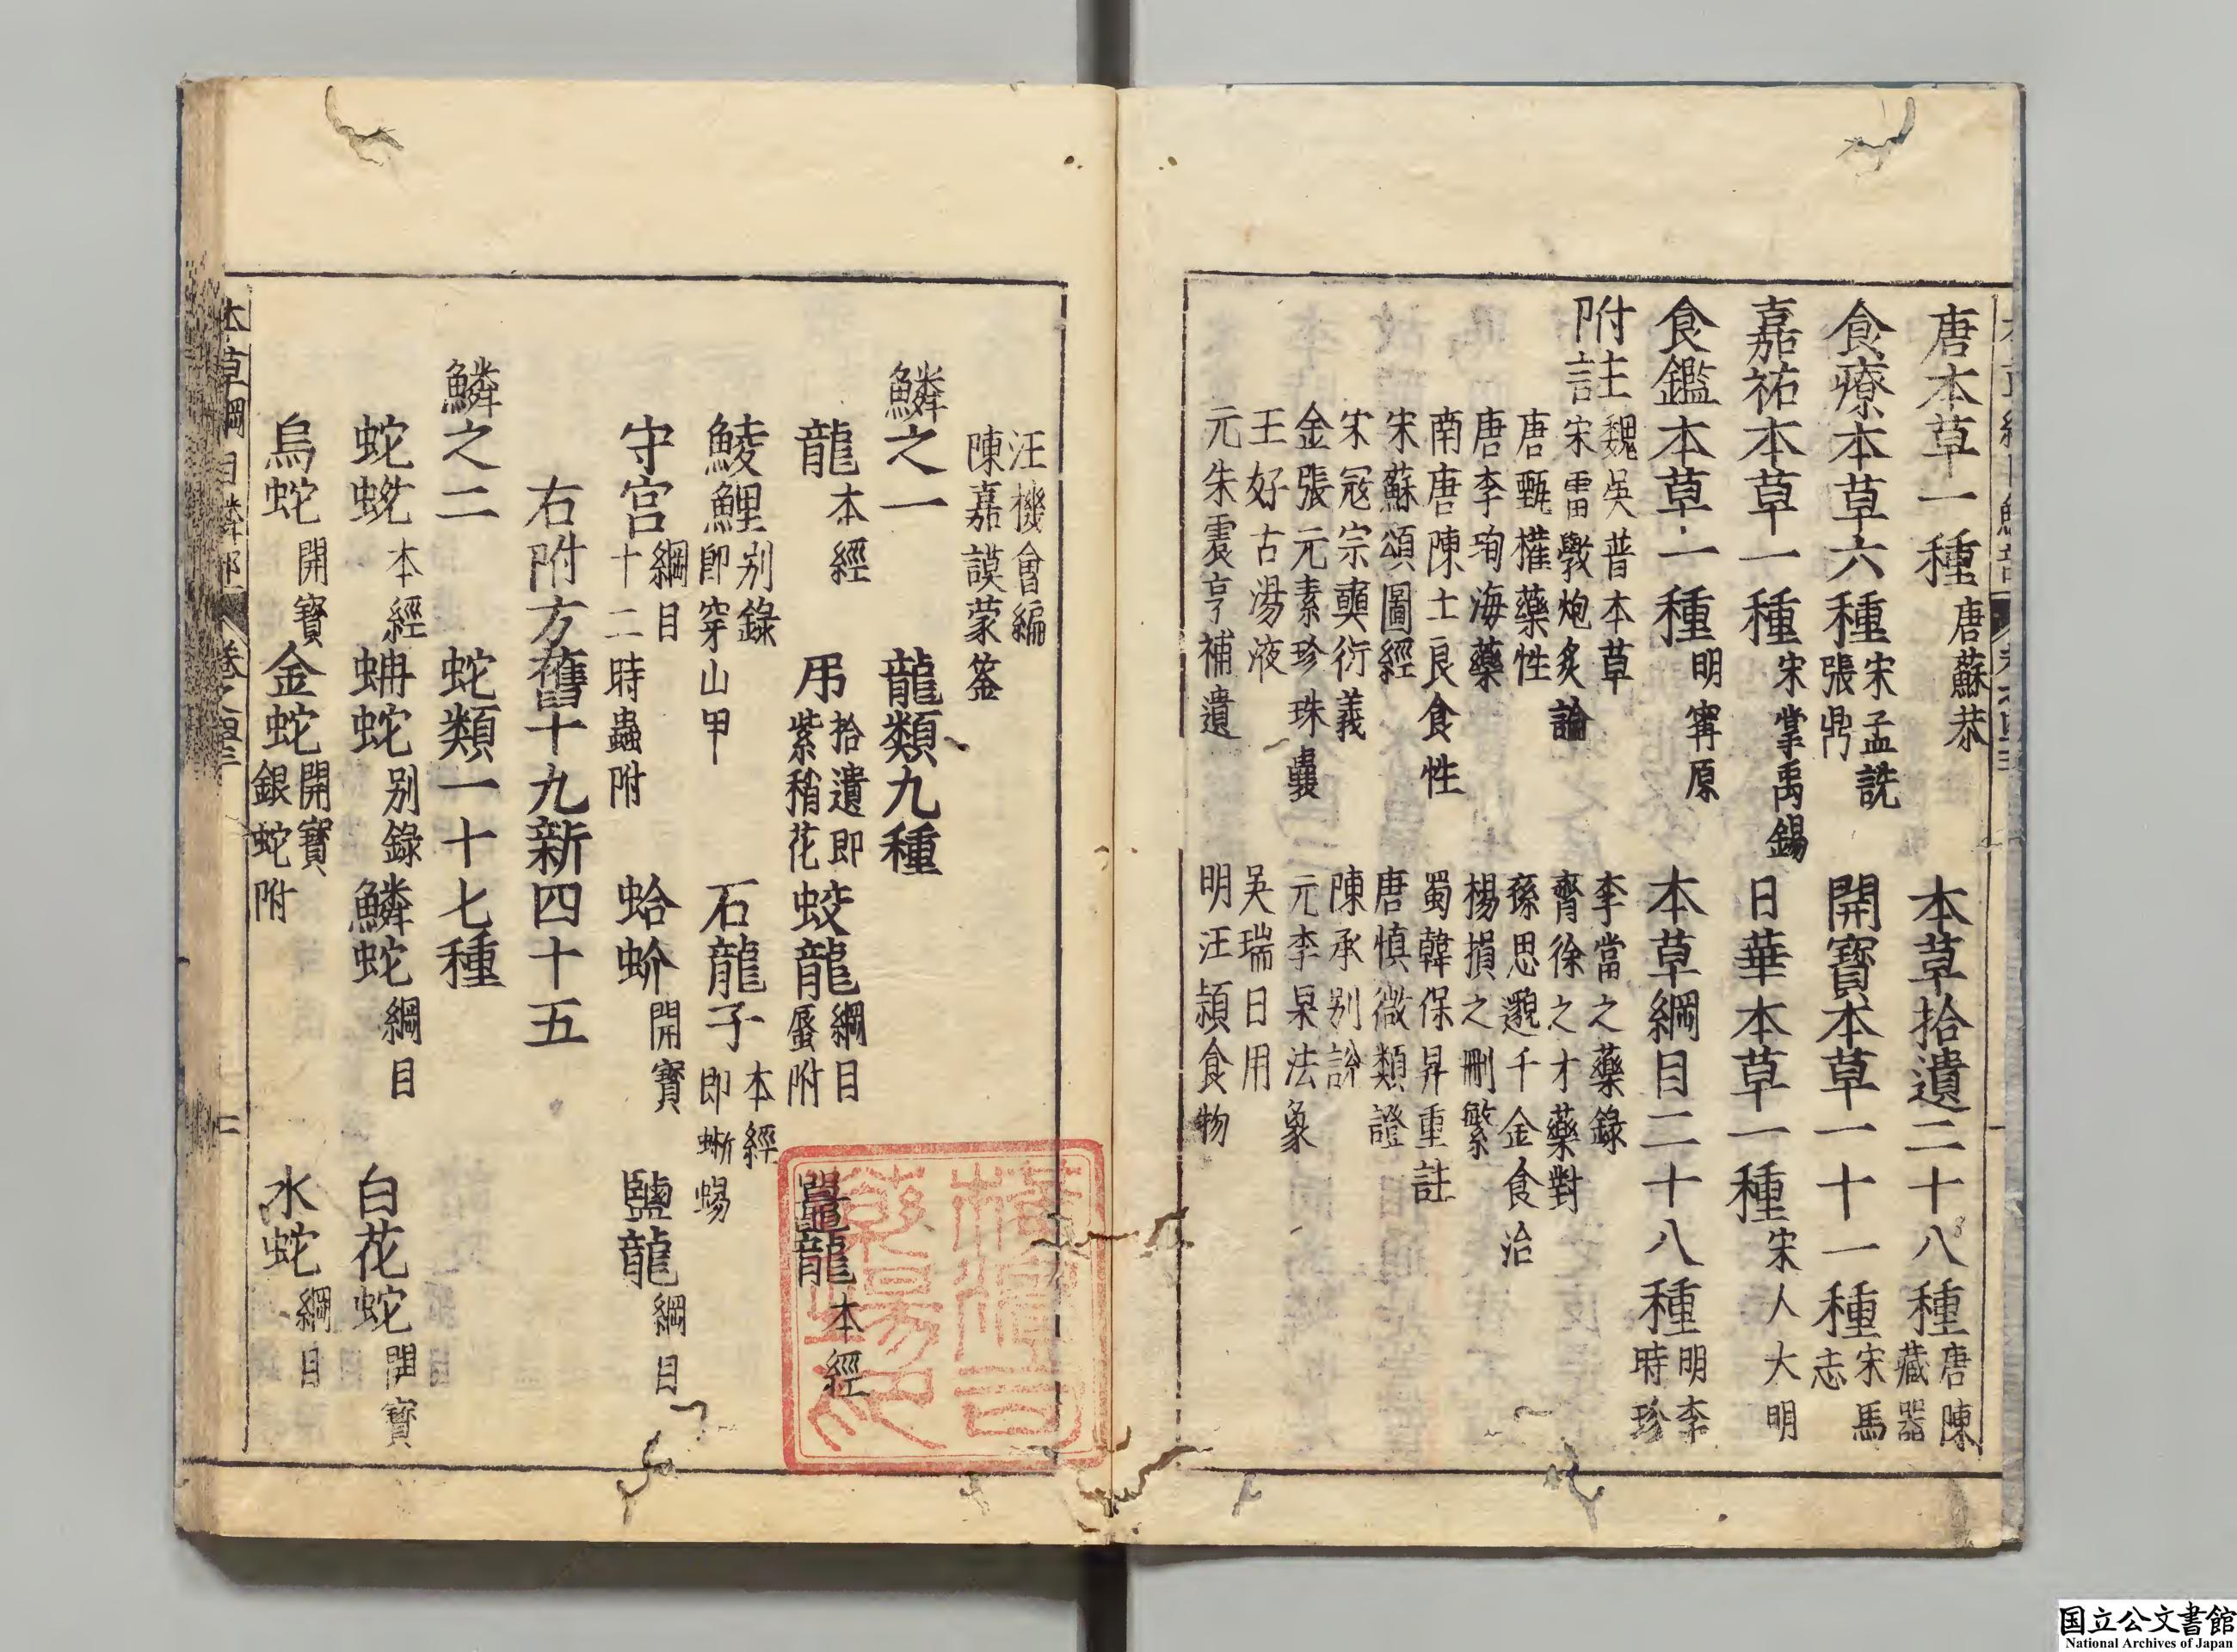 唐本草一種 唐蘇恭 本草拾遺二十八種 唐陳藏器
食療本草六種 宋孟詵張鼎 開寶本草一十一種 宋馬志
嘉祐本草一種 宋掌禹錫 日華本草一種 宋人大明
食鑑本草一種 明甯原 本草綱目二十八種 明李時珍
附註
魏吳普本草 李當之藥錄
宋雷斆炮炙論 齊徐之才藥對
唐甄權藥性 孫思邈千金食治
唐李珣海藥 楊損之刪繁
南唐陳士良食性 蜀韓保昇重註
宋蘇頌圖經 唐慎微類證
宋冦宗奭衍義 陳承別說
金張元素珍珠囊 元李杲法象
王好古湯液 吳瑞日用
元朱震亨補遺 明汪頴食物
汪機會編
陳嘉謨蒙筌
鱗之一 龍類九種
龍 本經 吊 拾遺即紫稍花 蛟龍 綱目蜃附 鼉龍 本經
鯪鯉 别錄即穿山甲 石龍子 本經即蜥蜴
守宮 綱目十二時蟲附 蛤蚧 開寶 鹽龍 綱目
右附方舊十九新四十五
鱗之二 蛇類一十七種
蛇蛻 本經 蚺蛇 别錄 鱗蛇 綱目 白花蛇 開寶
烏蛇 開寶 金蛇 開寶銀蛇附 水蛇 綱目
本草綱目鱗部 卷之四十三 二
国立公文書館
National Archives of Japan